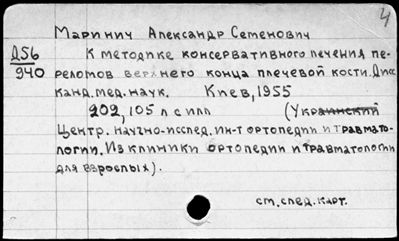 4
Маринич Александр Семенович
Д56
940
К методике консервативного лечения пе-
реломов верхнего конца плечевой кости. Дисс.
канд. мед. наук. Киев, 1955
202, 105 л с илл (Украинский
Центр. научно-исслед. ин-т ортопедии и травмато-
логии. Из клиники ортопедии и травматологии
для взрослых).
см. след. карт.